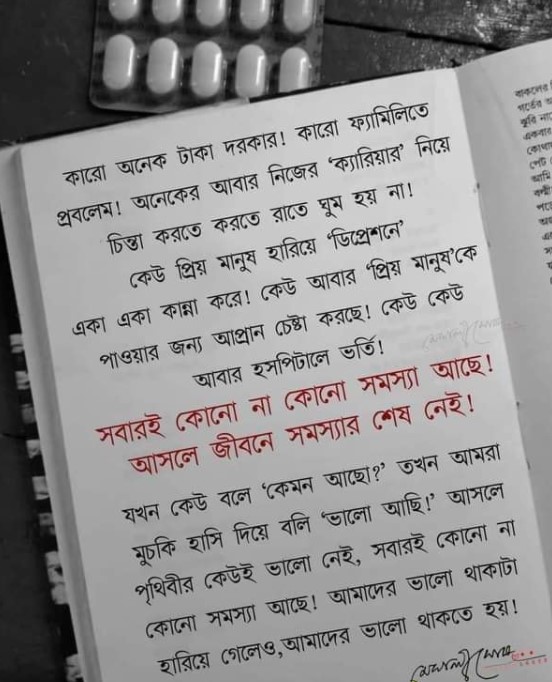 কারো অনেক টাকা দরকার! কারো ফ্যামিলিতে
প্রবলেম! অনেকের আবার নিজের ‘ক্যারিয়ার’ নিয়ে
চিন্তা করতে করতে রাতে ঘুম হয় না!
কেউ প্রিয় মানুষ হারিয়ে ‘ডিপ্রেশনে’
একা একা কান্না করে! কেউ আবার ‘প্রিয় মানুষ’কে
পাওয়ার জন্য আপ্রান চেষ্টা করছে! কেউ কেউ
আবার হসপিটালে ভর্তি!
সবারই কোনো না কোনো সমস্যা আছে!
আসলে জীবনে সমস্যার শেষ নেই!
যখন কেউ বলে ‘কেমন আছো?’ তখন আমরা
মুচকি হাসি দিয়ে বলি ‘ভালো আছি!’ আসলে
পৃথিবীর কেউই ভালো নেই, সবারই কোনো না
কোনো সমস্যা আছে! আমাদের ভালো থাকাটা
হারিয়ে গেলেও, আমাদের ভালো থাকতে হয়!